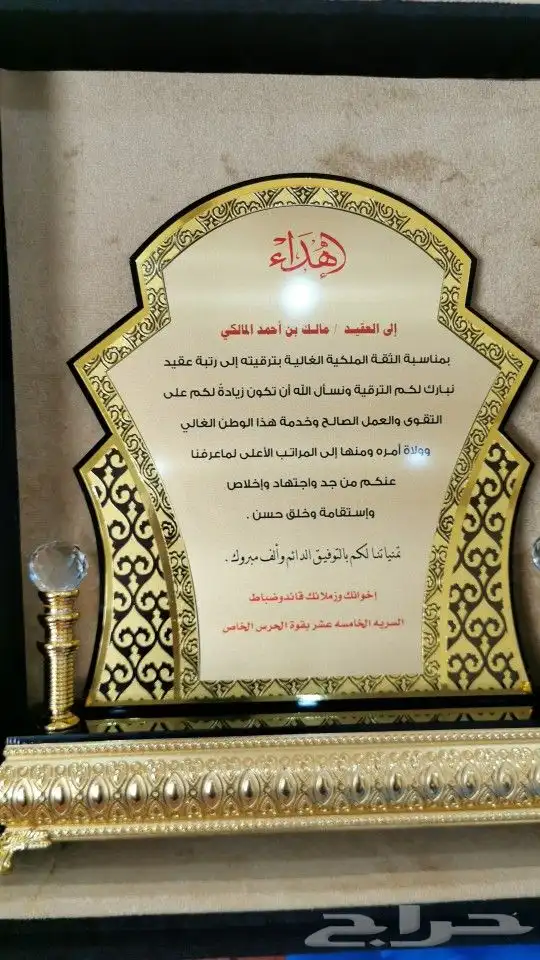 إهداء
إلى العقيد / مالك بن أحمد المالكي
بمناسبة الثقة الملكية الغالية بترقيته إلى رتبة عقيد
نبارك لكم الترقية ونسأل الله أن تكون زيادةً لكم على
التقوى والعمل الصالح وخدمة هذا الوطن الغالي
وولاة أمره ومنها إلى المراتب الأعلى لماعرفنا
عنكم من جد واجتهاد وإخلاص
وإستقامة وخلق حسن .
تمنياتنا لكم بالتوفيق الدائم وألف مبروك .
إخوانك وزملائك قائدوضباط
السريه الخامسه عشر بقوة الحرس الخاص
حراج